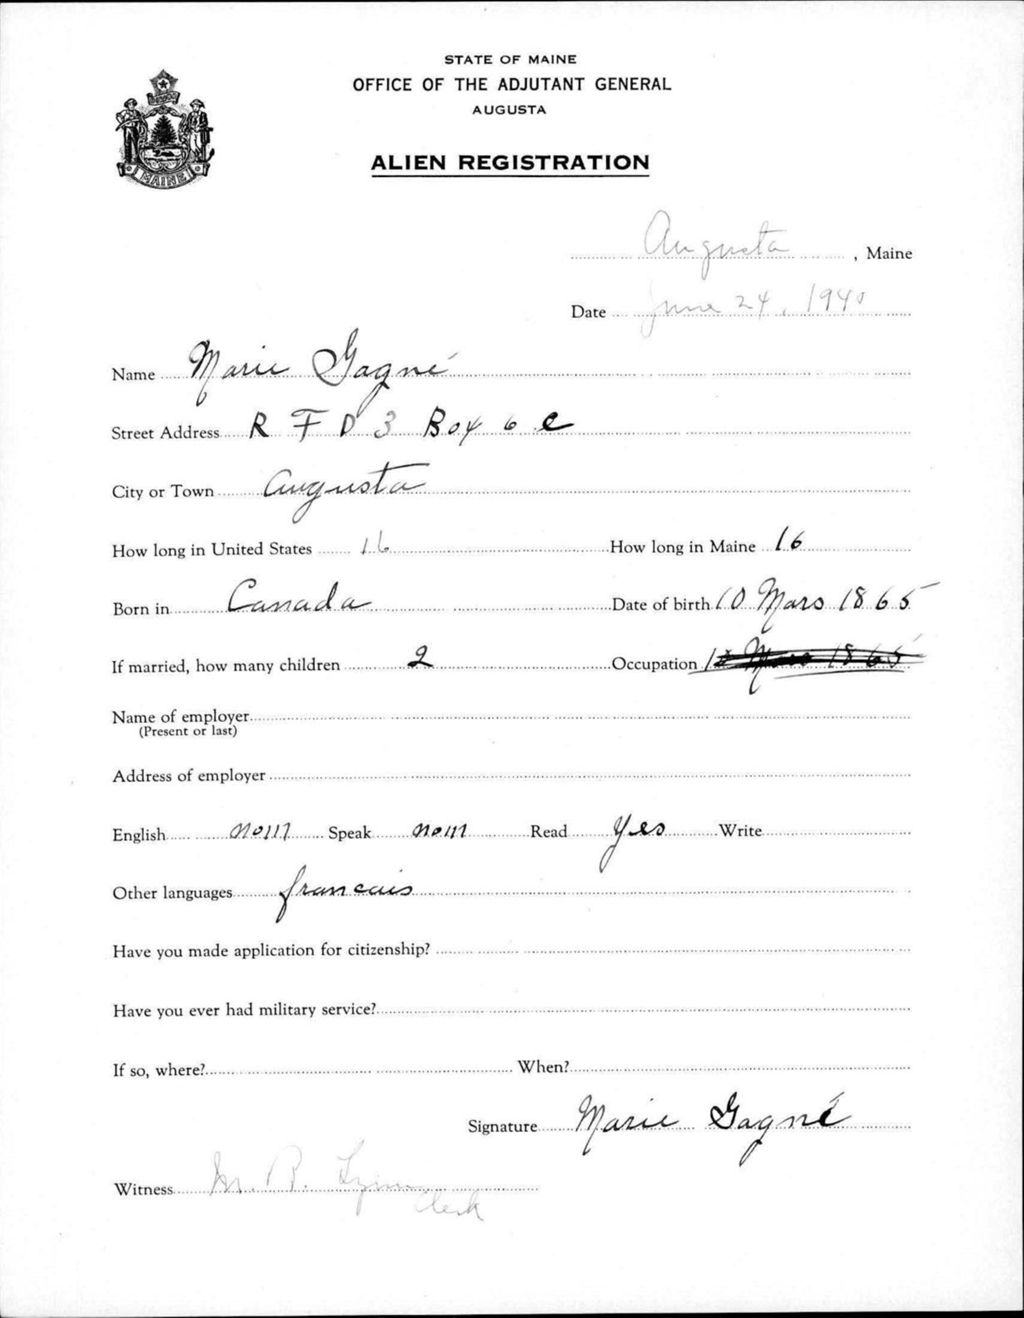 STATE OF MAINE
OFFICE OF THE ADJUTANT GENERAL
AUGUSTA
ALIEN REGISTRATION
MAINE
Augusta, Maine
Date June 24, 1940
Name Marie Gagné
Street Address R F D 3 Box 6 C
City or Town Augusta
How long in United States 16 How long in Maine 16
Born in Canada Date of birth 10 Mars 1865
If married, how many children 2 Occupation 10 Mars 1865
Name of employer
(Present or last)
Address of employer
English non Speak non Read Yes Write
Other languages francais
Have you made application for citizenship?
Have you ever had military service?
If so, where? When?
Signature Marie Gagné
Witness B. Clerk